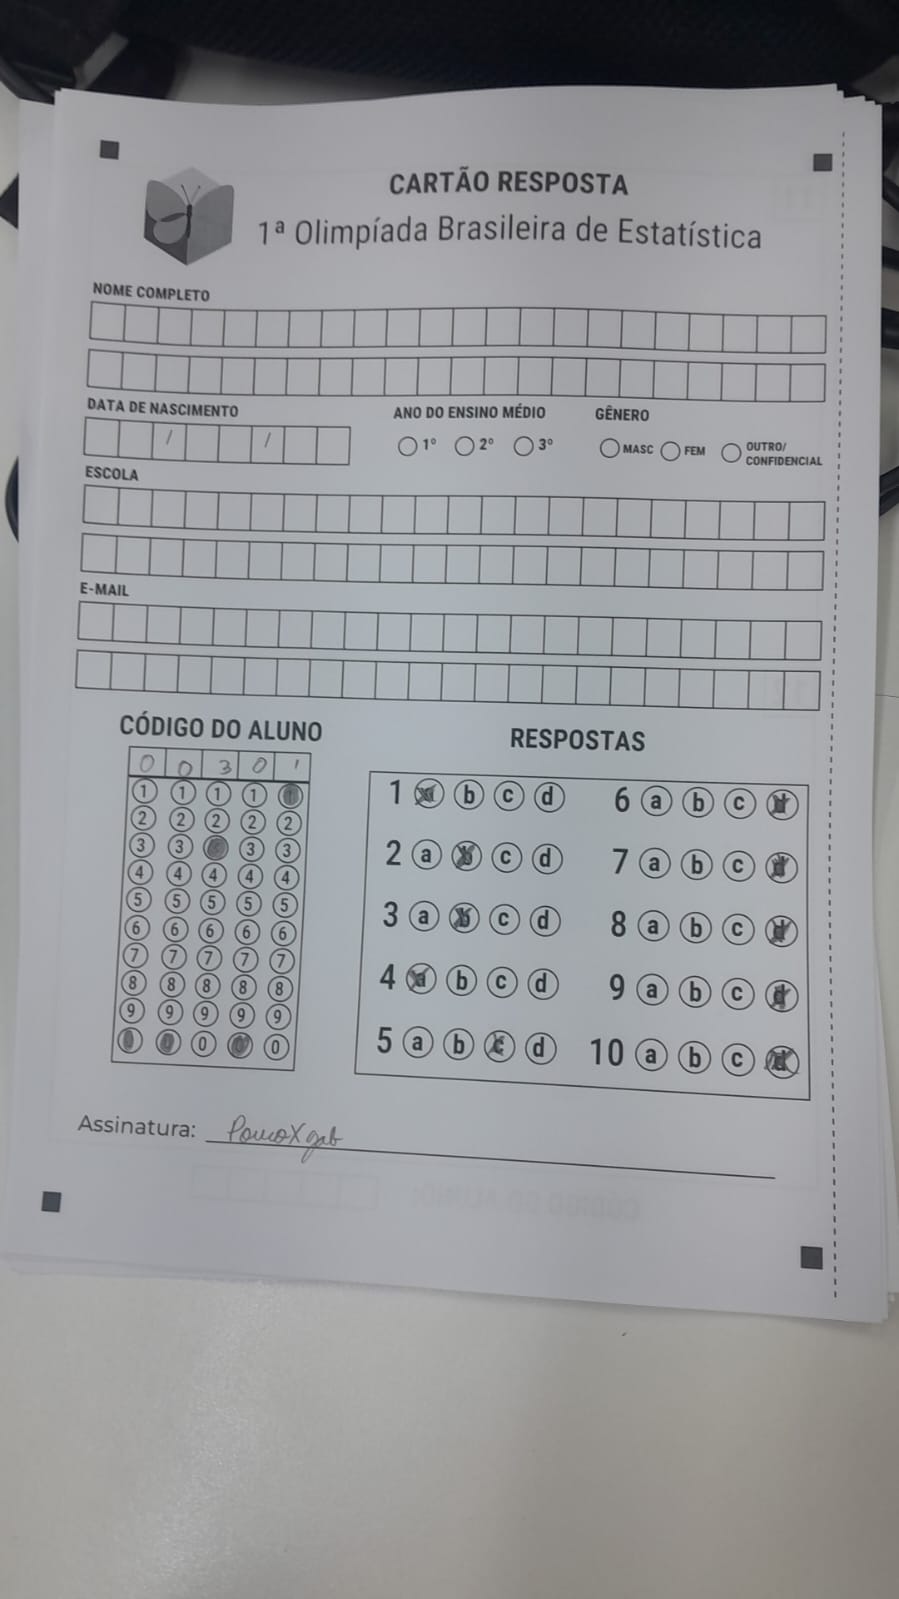 CARTÃO RESPOSTA
1ª Olimpíada Brasileira de Estatística
NOME COMPLETO
DATA DE NASCIMENTO
/ /
ANO DO ENSINO MÉDIO
1º 2º 3º
GÊNERO
MASC FEM OUTRO/
CONFIDENCIAL
ESCOLA
E-MAIL
CÓDIGO DO ALUNO
0 0 3 0 1
1 1 1 1
2 2 2 2 2
3 3 3 3
4 4 4 4 4
5 5 5 5 5
6 6 6 6 6
7 7 7 7 7
8 8 8 8 8
9 9 9 9 9
0 0 0 0 0
RESPOSTAS
1 a b c d 6 a b c d
2 a b c d 7 a b c d
3 a b c d 8 a b c d
4 a b c d 9 a b c d
5 a b c d 10 a b c d
Assinatura: